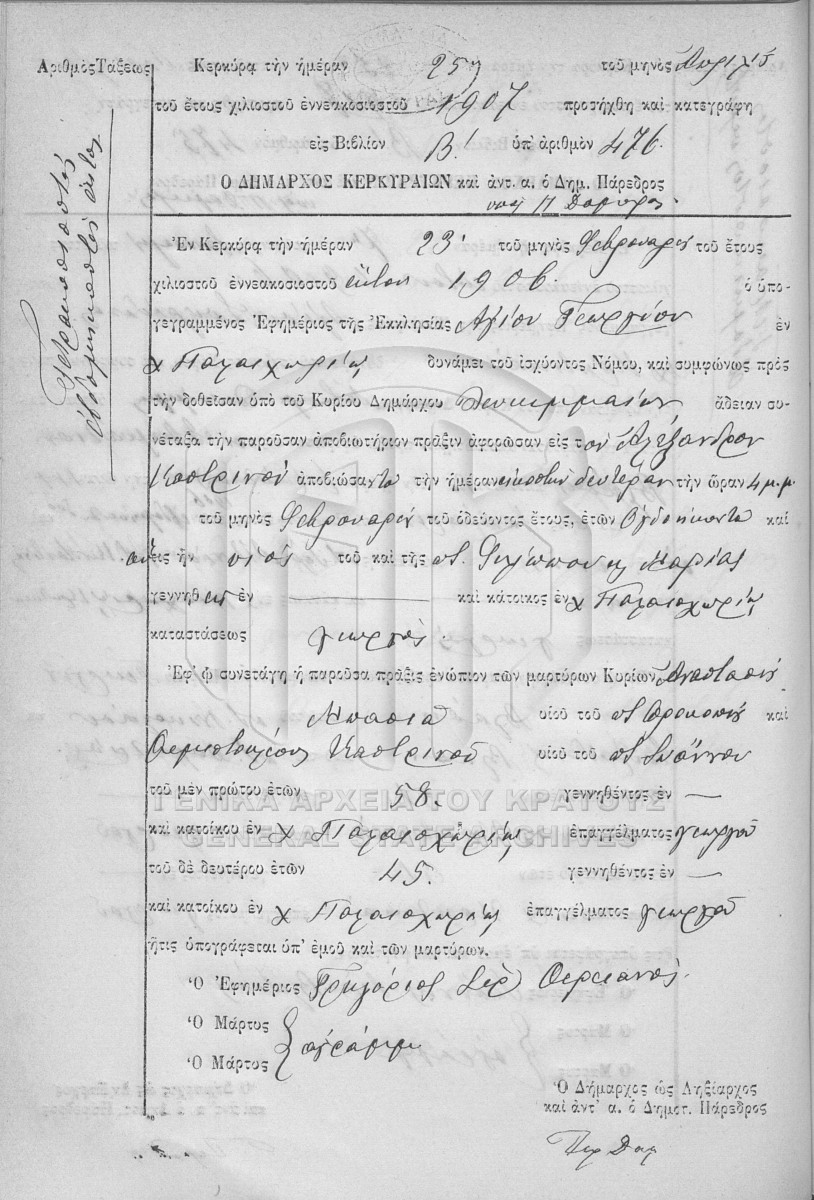 Ἀριθμὸς Τάξεως
Τετρακοσιοστὸς
ἑβδομηκοστὸς ἕκτος
Κερκύρᾳ τὴν ἡμέραν 25η τοῦ μηνὸς Ἀπριλίου
τοῦ ἔτους χιλιοστοῦ ἐννεακοσιοστοῦ 1907 προσήχθη καὶ κατεγράφη
εἰς Βιβλίον Β! ὑπ' ἀριθμὸν 476.
Ο ΔΗΜΑΡΧΟΣ ΚΕΡΚΥΡΑΙΩΝ καὶ ἀντ. α. ὁ Δημ. Πάρεδρος
Ἐν Κερκύρᾳ τὴν ἡμέραν 23' τοῦ μηνὸς Φεβρουαρίου τοῦ ἔτους
χιλιοστοῦ ἐννεακοσιοστοῦ ἕκτου 1906 ὁ ὑπο-
γεγραμμένος Ἐφημέριος τῆς Ἐκκλησίας Ἁγίου Γεωργίου ἐν
χ Παλαιοχωρίῳ δυνάμει τοῦ ἰσχύοντος Νόμου, καὶ συμφώνως πρὸς
τὴν δοθεῖσαν ὑπὸ τοῦ Κυρίου Δημάρχου Λευκιμμαίων ἄδειαν συ-
νέταξα τὴν παροῦσαν ἀποβιωτήριον πρᾶξιν ἀφορῶσαν εἰς τὸν Ἀλέξανδρον
Καστρινὸν ἀποβιώσαντα τὴν ἡμέραν εἰκοστὴν δευτέραν τὴν ὥραν 4 μ.μ.
τοῦ μηνὸς Φεβρουαρίου τοῦ ὁδεύοντος ἔτους, ἐτῶν Ὀγδοήκοντα καὶ
εἰς ἦν υἱὸς τοῦ καὶ τῆς π. Φιλίππου κ Μαρίας
γεννηθεὶς ἐν — καὶ κάτοικος ἐν χ Παλαιοχωρίῳ
καταστάσεως γεωργὸς.
Ἐφ' ᾧ συνετάγη ἡ παροῦσα πρᾶξις ἐνώπιον τῶν μαρτύρων Κυρίων Ἀναστασίου
Μπασιᾶ υἱοῦ τοῦ π. Προκοπίου καὶ
Θεμιστοκλέους Καστρινοῦ υἱοῦ τοῦ π. Ἰωάννου
τοῦ μὲν πρώτου ἐτῶν 58. γεννηθέντος ἐν —
καὶ κατοίκου ἐν χ Παλαιοχωρίῳ ἐπαγγέλματος γεωργοῦ
τοῦ δὲ δευτέρου ἐτῶν 45. γεννηθέντος ἐν —
καὶ κατοίκου ἐν χ Παλαιοχωρίῳ ἐπαγγέλματος γεωργοῦ
ἥτις ὑπογράφεται ὑπ' ἐμοῦ καὶ τῶν μαρτύρων.
Ὁ Ἐφημέριος Γρηγόριος Ἱερ Θερειανὸς.
Ὁ Μάρτυς
ἀγράμμ
Ὁ Μάρτυς
Ὁ Δήμαρχος ὡς Ληξίαρχος
καὶ ἀντ' α. ὁ Δημοτ. Πάρεδρος
ΓΕΝΙΚΑ ΑΡΧΕΙΑ ΤΟΥ ΚΡΑΤΟΥΣ
GENERAL STATE ARCHIVES